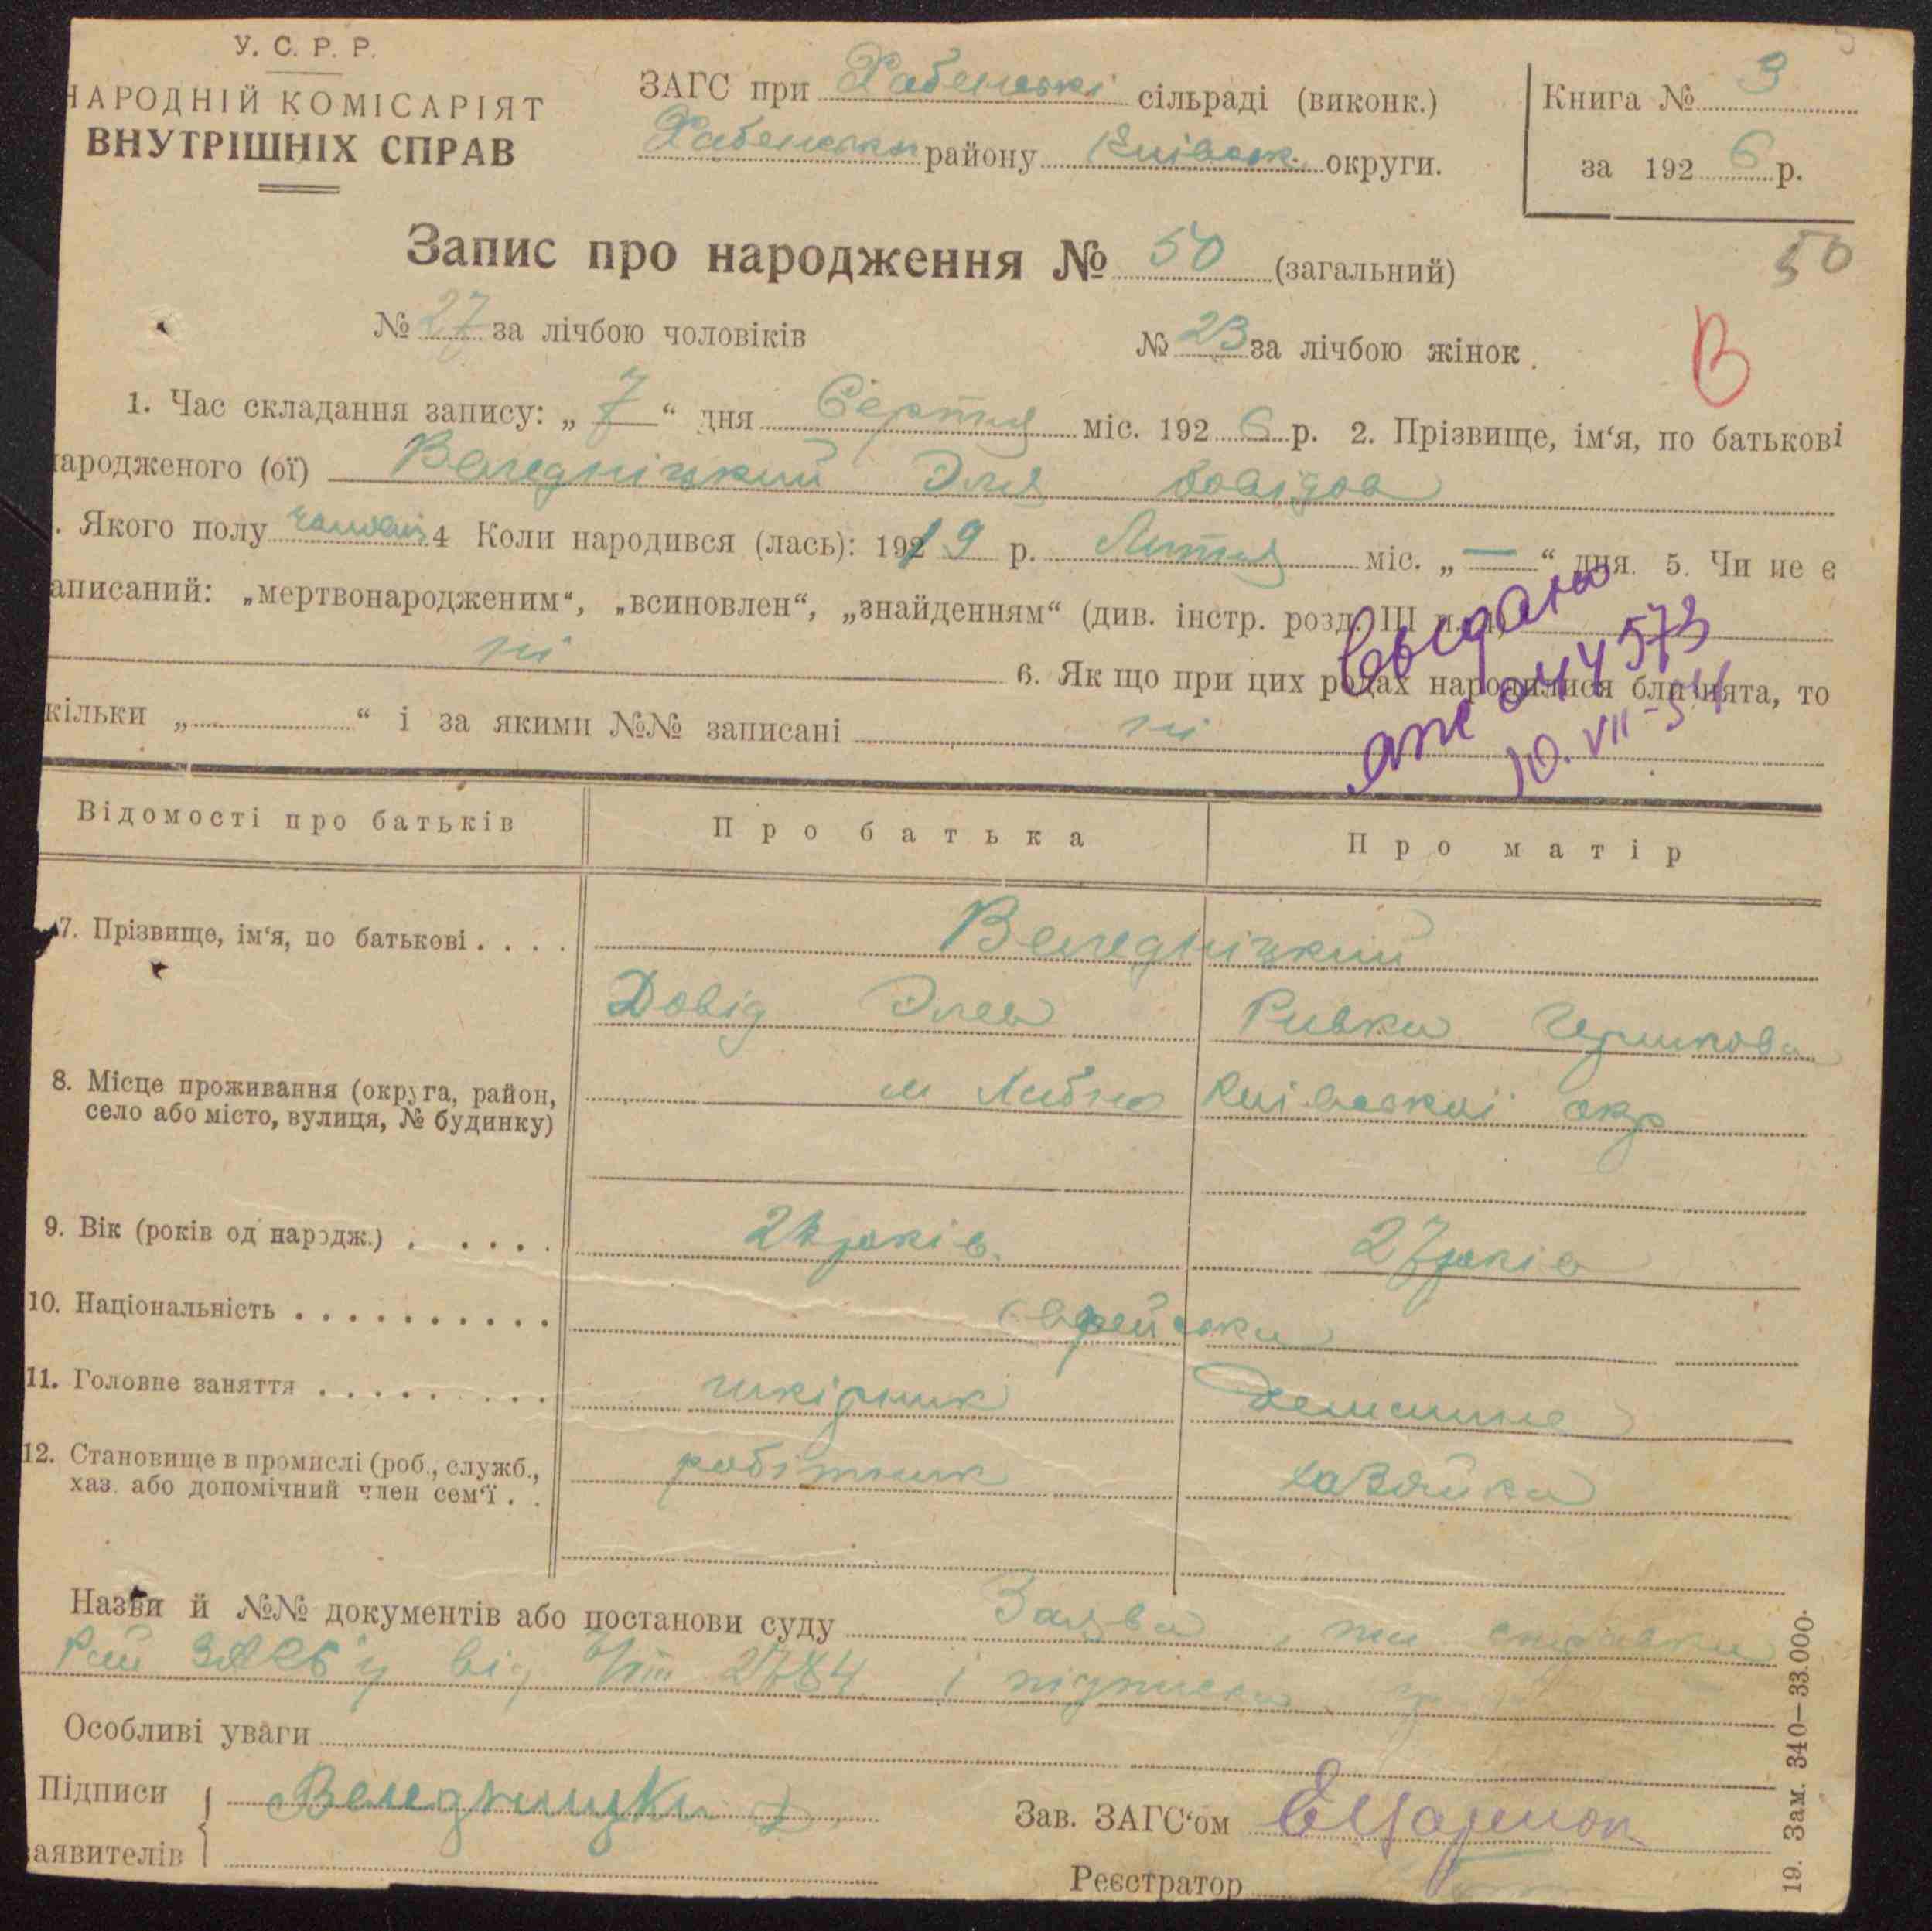 У. С. Р. Р.
НАРОДНІЙ КОМІСАРІЯТ
ВНУТРІШНІХ СПРАВ
ЗАГС при Хабенські сільраді (виконк.)
району Київськ округи.
Книга № 3
за 1926 р.
Запис про народження № 50 (загальний)
50
№ 27 за лічбою чоловіків
№ 23 за лічбою жінок.
В
1. Час складання запису: „7“ дня Серпня міс. 1926 р. 2. Прізвище, ім‘я, по батькові
ародженого (ої) Веледніцкий Эля Довідов
. Якого полу 4 Коли народився (лась): 1919 р. Лютня міс. „—“ дня. 5. Чи не є
аписаний: „мертвонародженим“, „всиновлен“, „знайденням“ (див. інстр. розд. III
ні
6. Як що при цих родах народилися близнята, то
кільки „ “ і за якими №№ записані ні
Выдано
044573
10.VII-34
Відомості про батьків
Про батька
Про матір
7. Прізвище, ім‘я, по батькові . . . .
Веледніцкий
Довід Элев
Ривка Гершкова
8. Місце проживання (округа, район,
село або місто, вулиця, № будинку)
м Хабно Київської окр
9. Вік (років од народж.) . . . . .
років
27 років
10. Національність . . . . . . . . . .
Еврейська
11. Головне заняття . . . . . . . .
шкірник
Домашне
12. Становище в промислі (роб., служб.,
хаз. або допомічний член сем‘ї . .
робітник
хазяйка
Назви й №№ документів або постанови суду Заява, та справка
Рай ЗАГС'у від 2784 і підписка
Особливі уваги
Підписи
аявителів
Веледницки
Зав. ЗАГС‘ом
Реєстратор
19. Зам. 340—33.000.